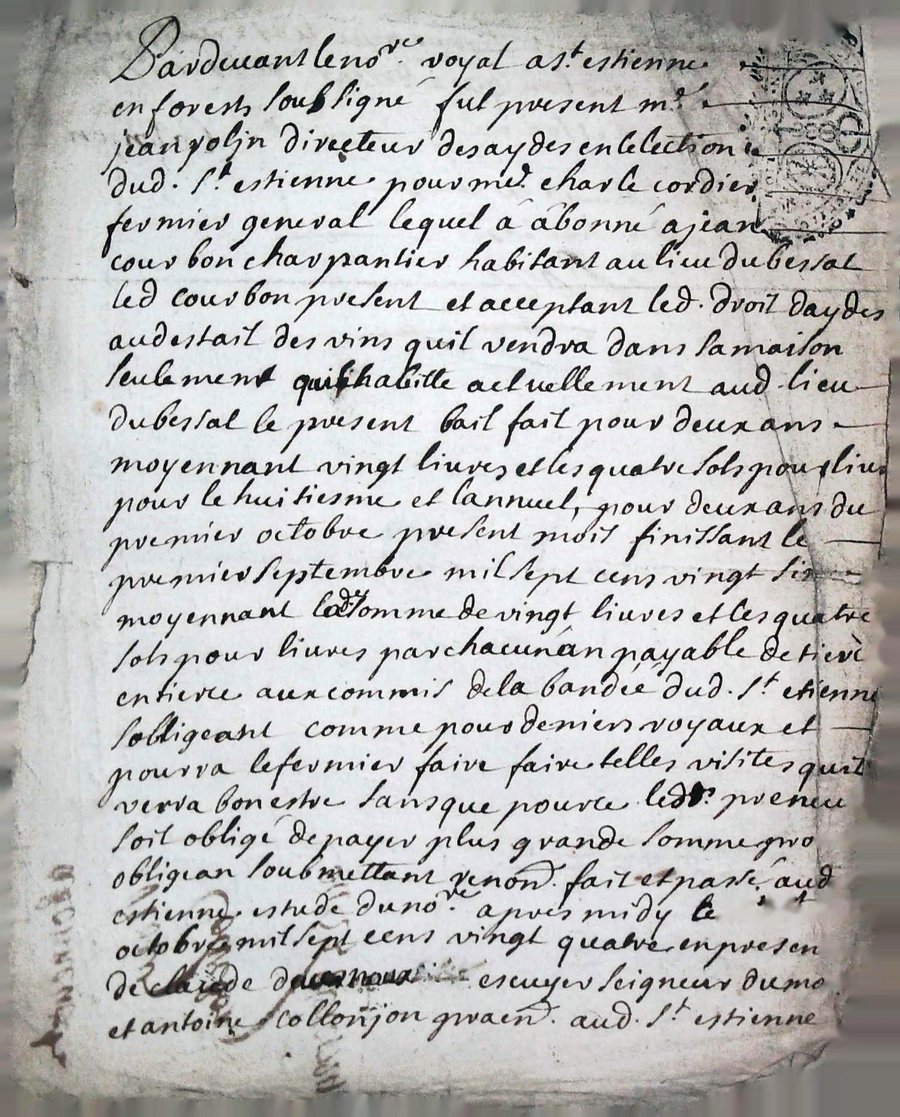 Pardevant le nore. royal a st. estienne
en forests soubsigné fut present me.
jean polin directeur des aydes en lelection
dud. st. estienne pour me. charle cordier
fermier general lequel á âbonné a jean
courbon charpantier habitant au lieu du bessat
led courbon present et acceptant led. droit daydes
au destail des vins quil vendra dans sa maison
seulement quil habitte actuellement aud. lieu
du bessat le present bail fait pour deux ans
moyennant vingt livres et les quatre sols pour livre
pour le huitiesme et lannuel, pour deux ans du
premier octobre present mois finissant le
premier septembre mil sept cens vingt six
moyennant lad. somme de vingt livres et les quatre
sols pour livres par chacun an payable de tierc
en tierce aux commis de la bandée dud. st. etienne
sobligeant comme pour deniers royaux et
pourra le fermier faire faire telles visites quil
verra bon estre sans que pour ce led. sr. preneu
soit obligé de payer plus grande somme pro
obligean soubmettant renond. fait et passé aud
estienne estude du nore. apres midy le
octobre mil sept cens vingt quatre en presen
de claude escuyer seigneur du mo
et antoine collonjon praend. aud. st. estienne